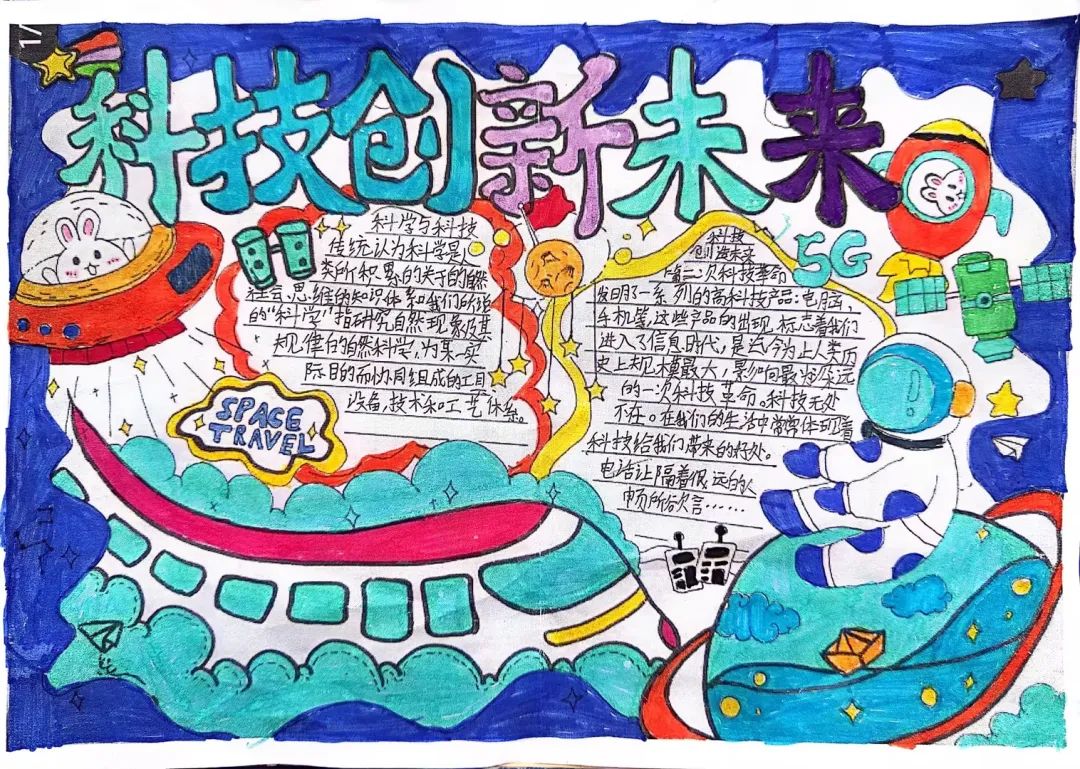 1/
科技创新未来
科学与科技
传统认为科学是人
类所积累的关于的自然
社会思维的知识体系和我们所说
的“科学”指研究自然现象及其
规律的自然科学,为某一实
际目的而协同组成的工具
设备,技术和工艺体系。
SPACE
TRAVEL
科技
创造未来
第三次科技革命
发明了一系列的高科技产品:电脑,
手机等,这些产品的出现,标志着我们
进入了信息时代,是迄今为止人类历
史上规模最大,影响最为深远
的一次科技革命。科技无处
不在。在我们的生活中常常体现着
科技给我们带来的好处。
电话让隔着很远的人
畅所欲言……
5G